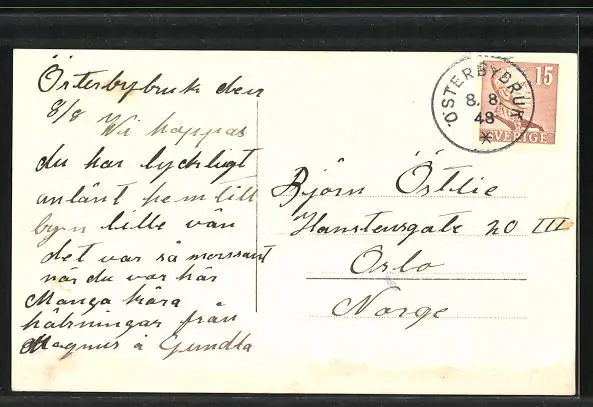 Österbybruk den
8/8 Vi hoppas
du har lyckligt
anlänt hem till
byn lille vän
det var så morssamt
när du var här
Många kära
hälsningar från
Magnus å Gundla
15
SVERIGE
ÖSTERBYBRUK
8. 8.
48
Björn Östlie
Hanstensgate 20 III
Oslo
Norge